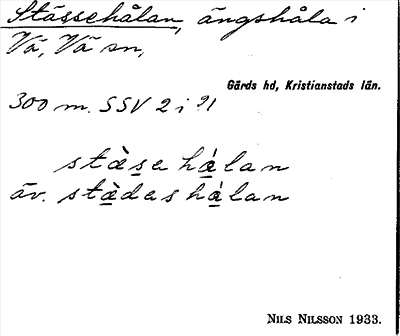 Stässehålan, ängshåla i
Vä, Vä sn,
Gärds hd, Kristianstads län.
300 m. SSV 2 i 91
stàse hålan
äv. stàdas hålan
NILS NILSSON 1933.